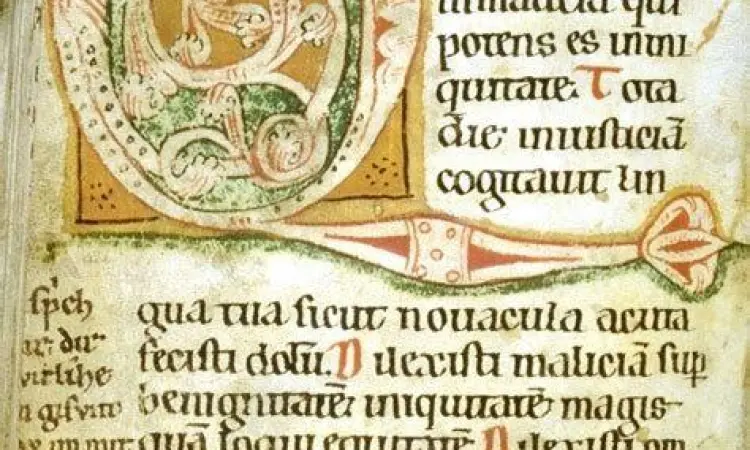 in malicia qui
potens es in ini
quitate. Tota
die iniusticiā
cogitauit lin
gua tua sicut nouacula acuta
fecisti dolū. Dilexisti maliciam sup
benignitatē iniquitatē magis
quā loqui equitatē Dilexisti om